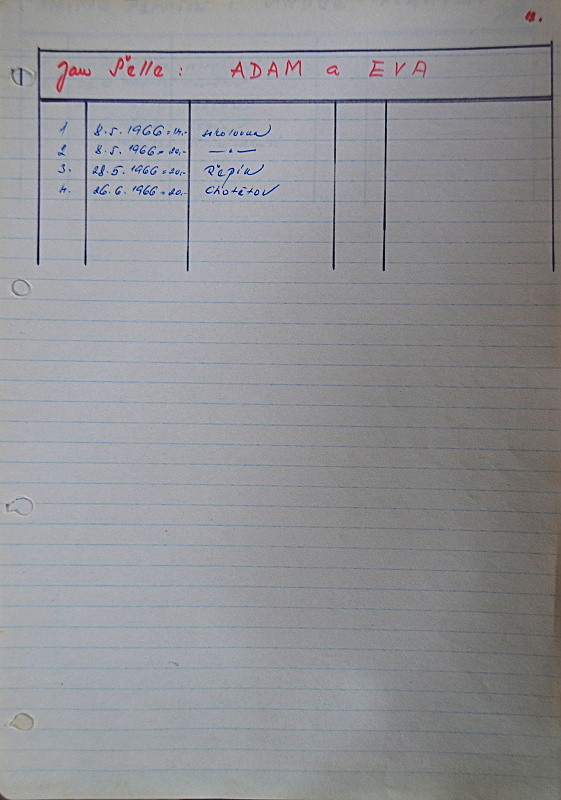 19.
Jan Pelle : ADAM a EVA
1 8.5.1966 = 14.-
2 8.5.1966 = 20.- — „ —
3. 28.5.1966 = 20.- Řepín
4. 26.6.1966 = 20.- Chotětov